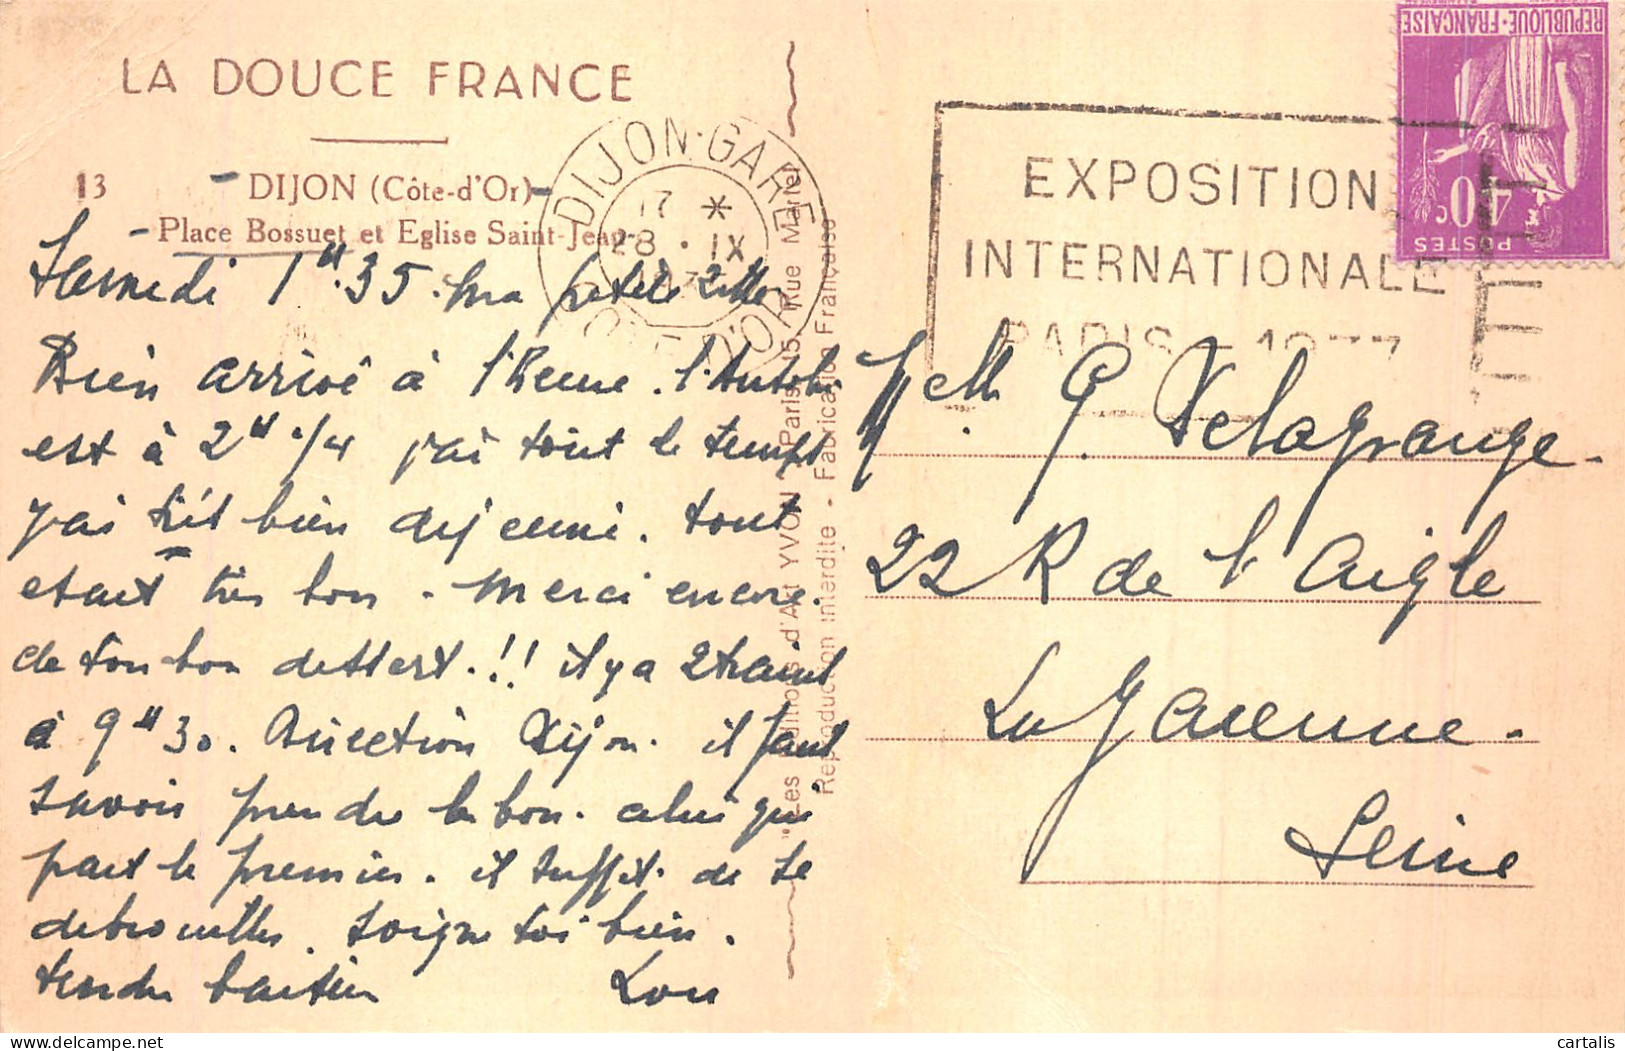 LA DOUCE FRANCE
13 - DIJON (Côte-d'Or) -
- Place Bossuet et Eglise Saint-Jean -
Samedi 1H.35. Ma petite
Bien arrivé à l'heure. l'Autobus
est à 2H 1/4 j'ai tout le temps
j'ai très bien dejeuné. tout
etait très bon. Merci encore.
de ton bon dessert.!! il y a 2 trains
à 9H30. Direction Dijon. il faut
savoir prendre le bon. celui qui
part le premier. il suffit de se
debrouiller. soigne toi bien.
tendre baiser Lou
"Les Editions d'Art YVON" Paris, 15, Rue Martel
Reproduction interdite - Fabrication Française
DIJON-GARE
17 *
28 · IX
COTE D'OR
EXPOSITION
INTERNATIONALE
PARIS - 1937
REPUBLIQUE·FRANÇAISE
40c
POSTES
Melle G. Delagrange.
22 R de l'Aigle
La Garenne.
Seine
cartalis